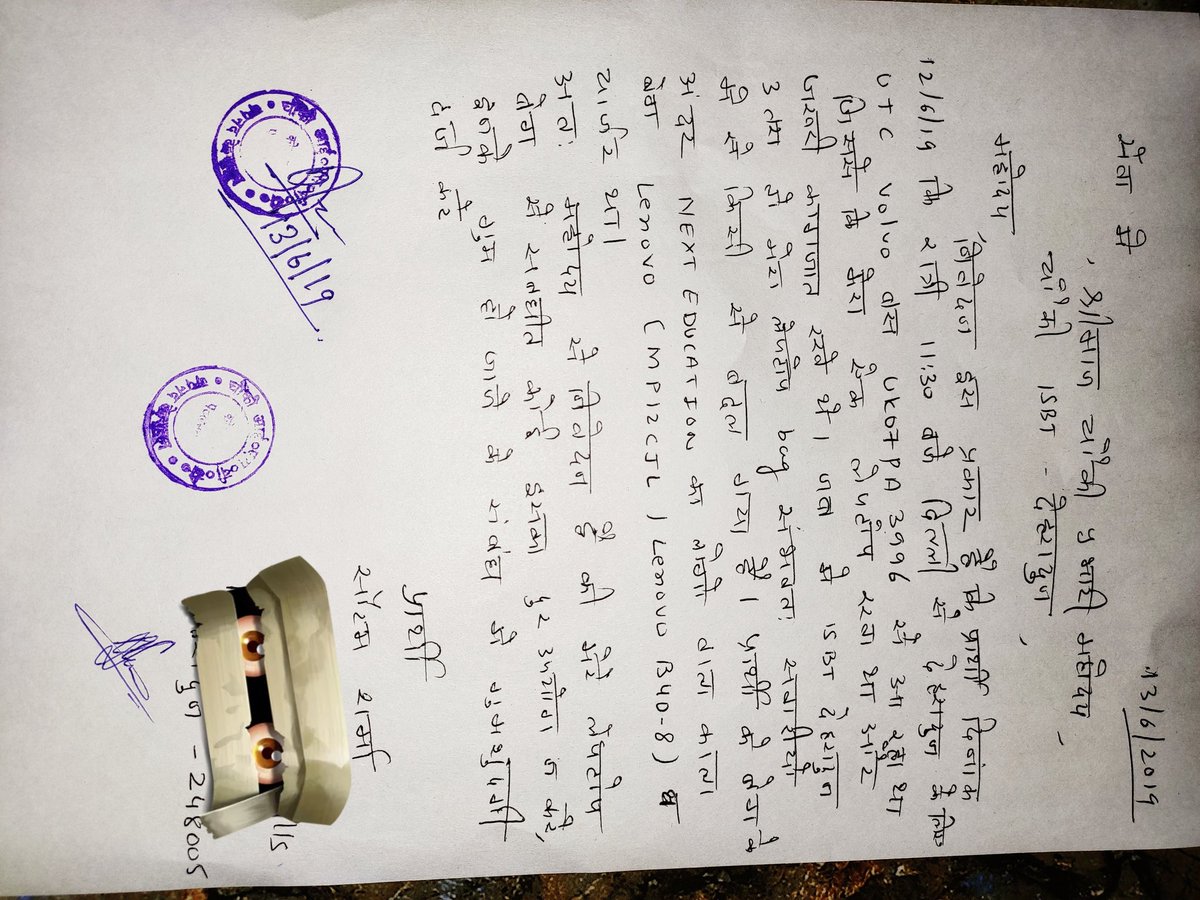 13/6/2019
सेवा मे
श्रीमान चौकी प्रभारी महोदय
चौकी ISBT - देहरादून
महोदय
निवेदन इस प्रकार है कि प्रार्थी दिनांक
12/6/19 कि रात्री 11:30 बजे दिल्ली से देहरादून के लिए
UTC Volvo बस UK07PA 3996 से आ रहा था
जिसमे कि मेरा एक लेपटॉप रखा था और
जरूरी कागजात रखे थे। जब मै ISBT देहरादून
उतरा तो मेरा लेपटॉप bag संभावतः सवारियो
मे से किसी से बदल गया है। प्रार्थी के बैग के
अंदर NEXT EDUCATION का लोगो वाला काला
बैग Lenovo (MP12CTL) Lenovo B40-8) व
चार्जर था।
अतः महोदय से निवेदन है की मेरे लेपटोप
बैग से सम्बंधित कोई इसका दुर उपयोग न करे,
इसके गुम हो जाने के संबंध मे गुमशुदगी
दर्ज करे
प्रार्थी
शर्मा
115
दून - 248005
13/6/19